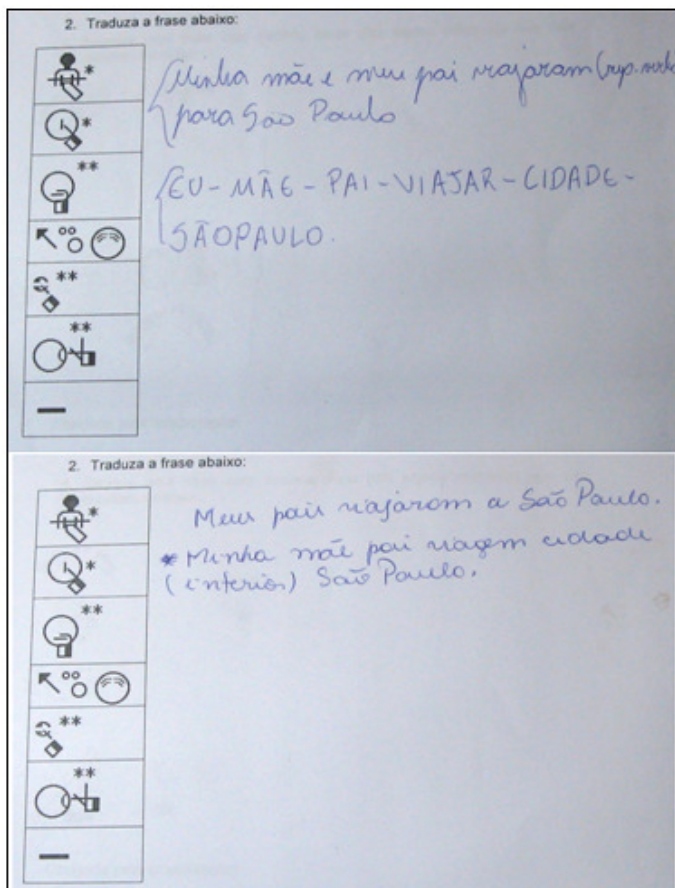 2. Traduza a frase abaixo:
Minha mãe e meu pai viajaram
para São Paulo
EU - MÃE - PAI - VIAJAR - CIDADE -
SÃOPAULO.
2. Traduza a frase abaixo:
Meus pais viajaram a São Paulo.
* Minha mãe pai viagem cidade
(interior) São Paulo.